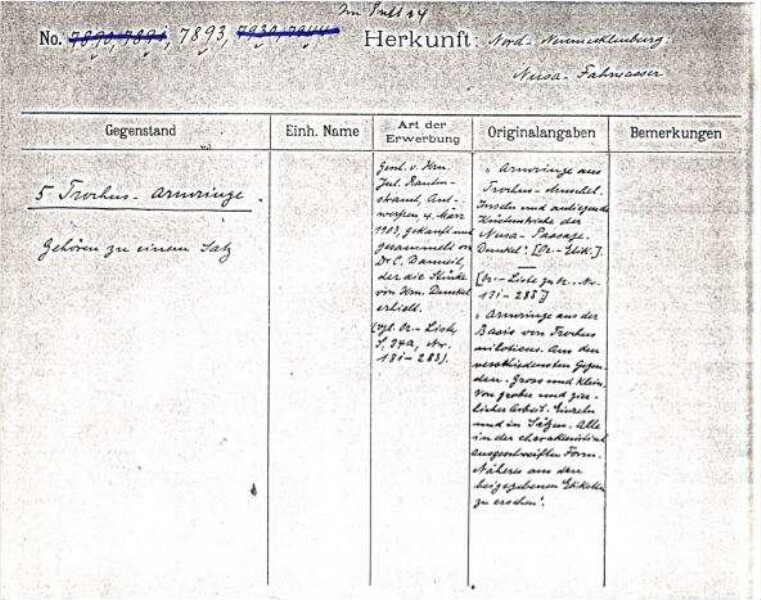 Im Pult 24
No. 7890, 7891, 7893, 7930, 7944 Herkunft: Nord-Neumecklenburg:
Nusa-Fahrwasser
Gegenstand
Einh. Name
Art der
Erwerbung
Originalangaben
Bemerkungen
5 Trochus-Armringe.
Gehören zu einem Satz
Gesch. v. Hrn.
Jul. Rauten-
strauch, Ant-
werpen, 4. März
1903, gekauft und
gesammelt von
Dr C. Danneil,
der die Stücke
von Hrn. Dunkel
erhielt.
(vgl. Or.-Liste,
S. 24a, Nr.
18i-283).
„Armringe aus
Trochus-Muschel.
Inseln und anliegende
Küstenstriche der
Nusa-Passage.
Dunkel". [Or.-Etik.].
[Or.-Liste zu Or.-Nr.
13i-285]
„Armringe aus der
Basis von Trochus
niloticus. Aus den
verschiedensten Gegen-
den. Gross und klein.
Von grober und zier-
licher Arbeit. Einzeln
und in Sätzen. Alle
in der charakteristisch
ausgeschweiften Form.
Näheres aus den
beigegebenen Etiketten
zu ersehen".